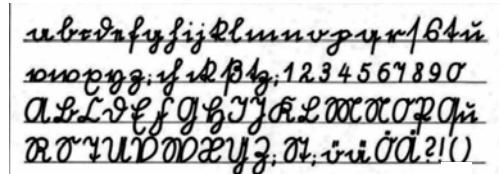 abcdefghijklmnopqrſstŭ
vwxyz; ch ck ß tz; 1 2 3 4 5 6 7 8 9 0
A B C D E F G H I J K L M N O P Qŭ
R S T U V W X Y Z; St; öü Ö Ä ? ! ( )